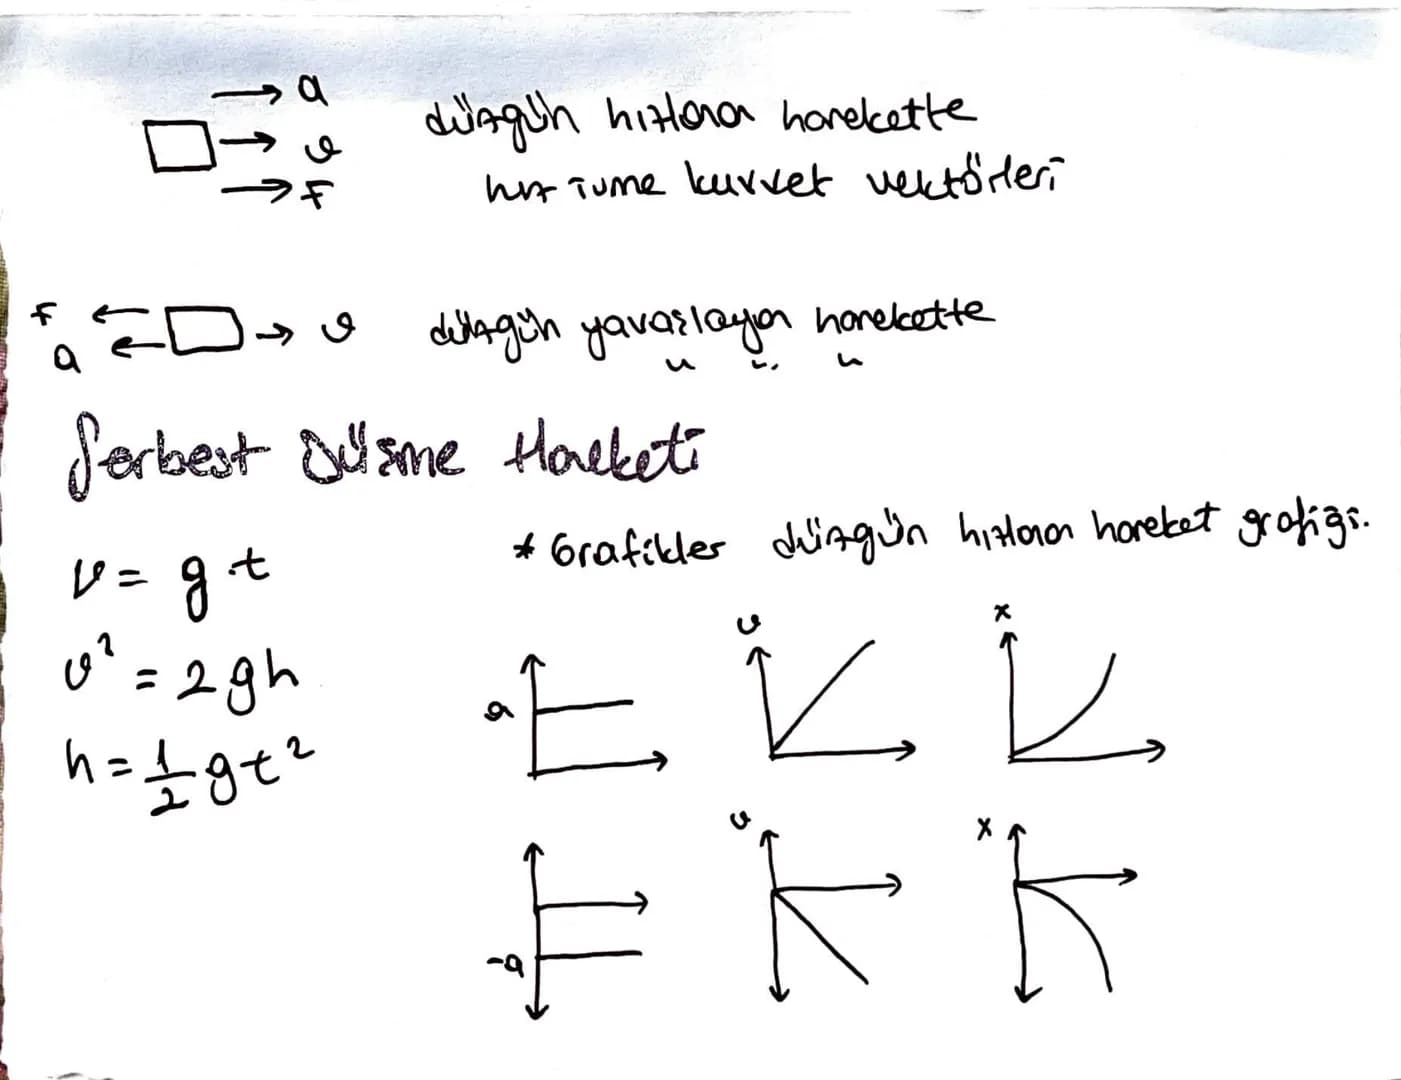 a
v
F
düzgün hızlanan harekette
hız ivme kuvvet vektörleri
F
a
v
düzgün yavaşlayan harekette
" " "
Serbest Düşme Hareketi
* Grafikler düzgün hızlanan hareket grafiği.
v = g.t
v² = 2gh
h = 1/2 gt²
a
v
x
-a
v
x